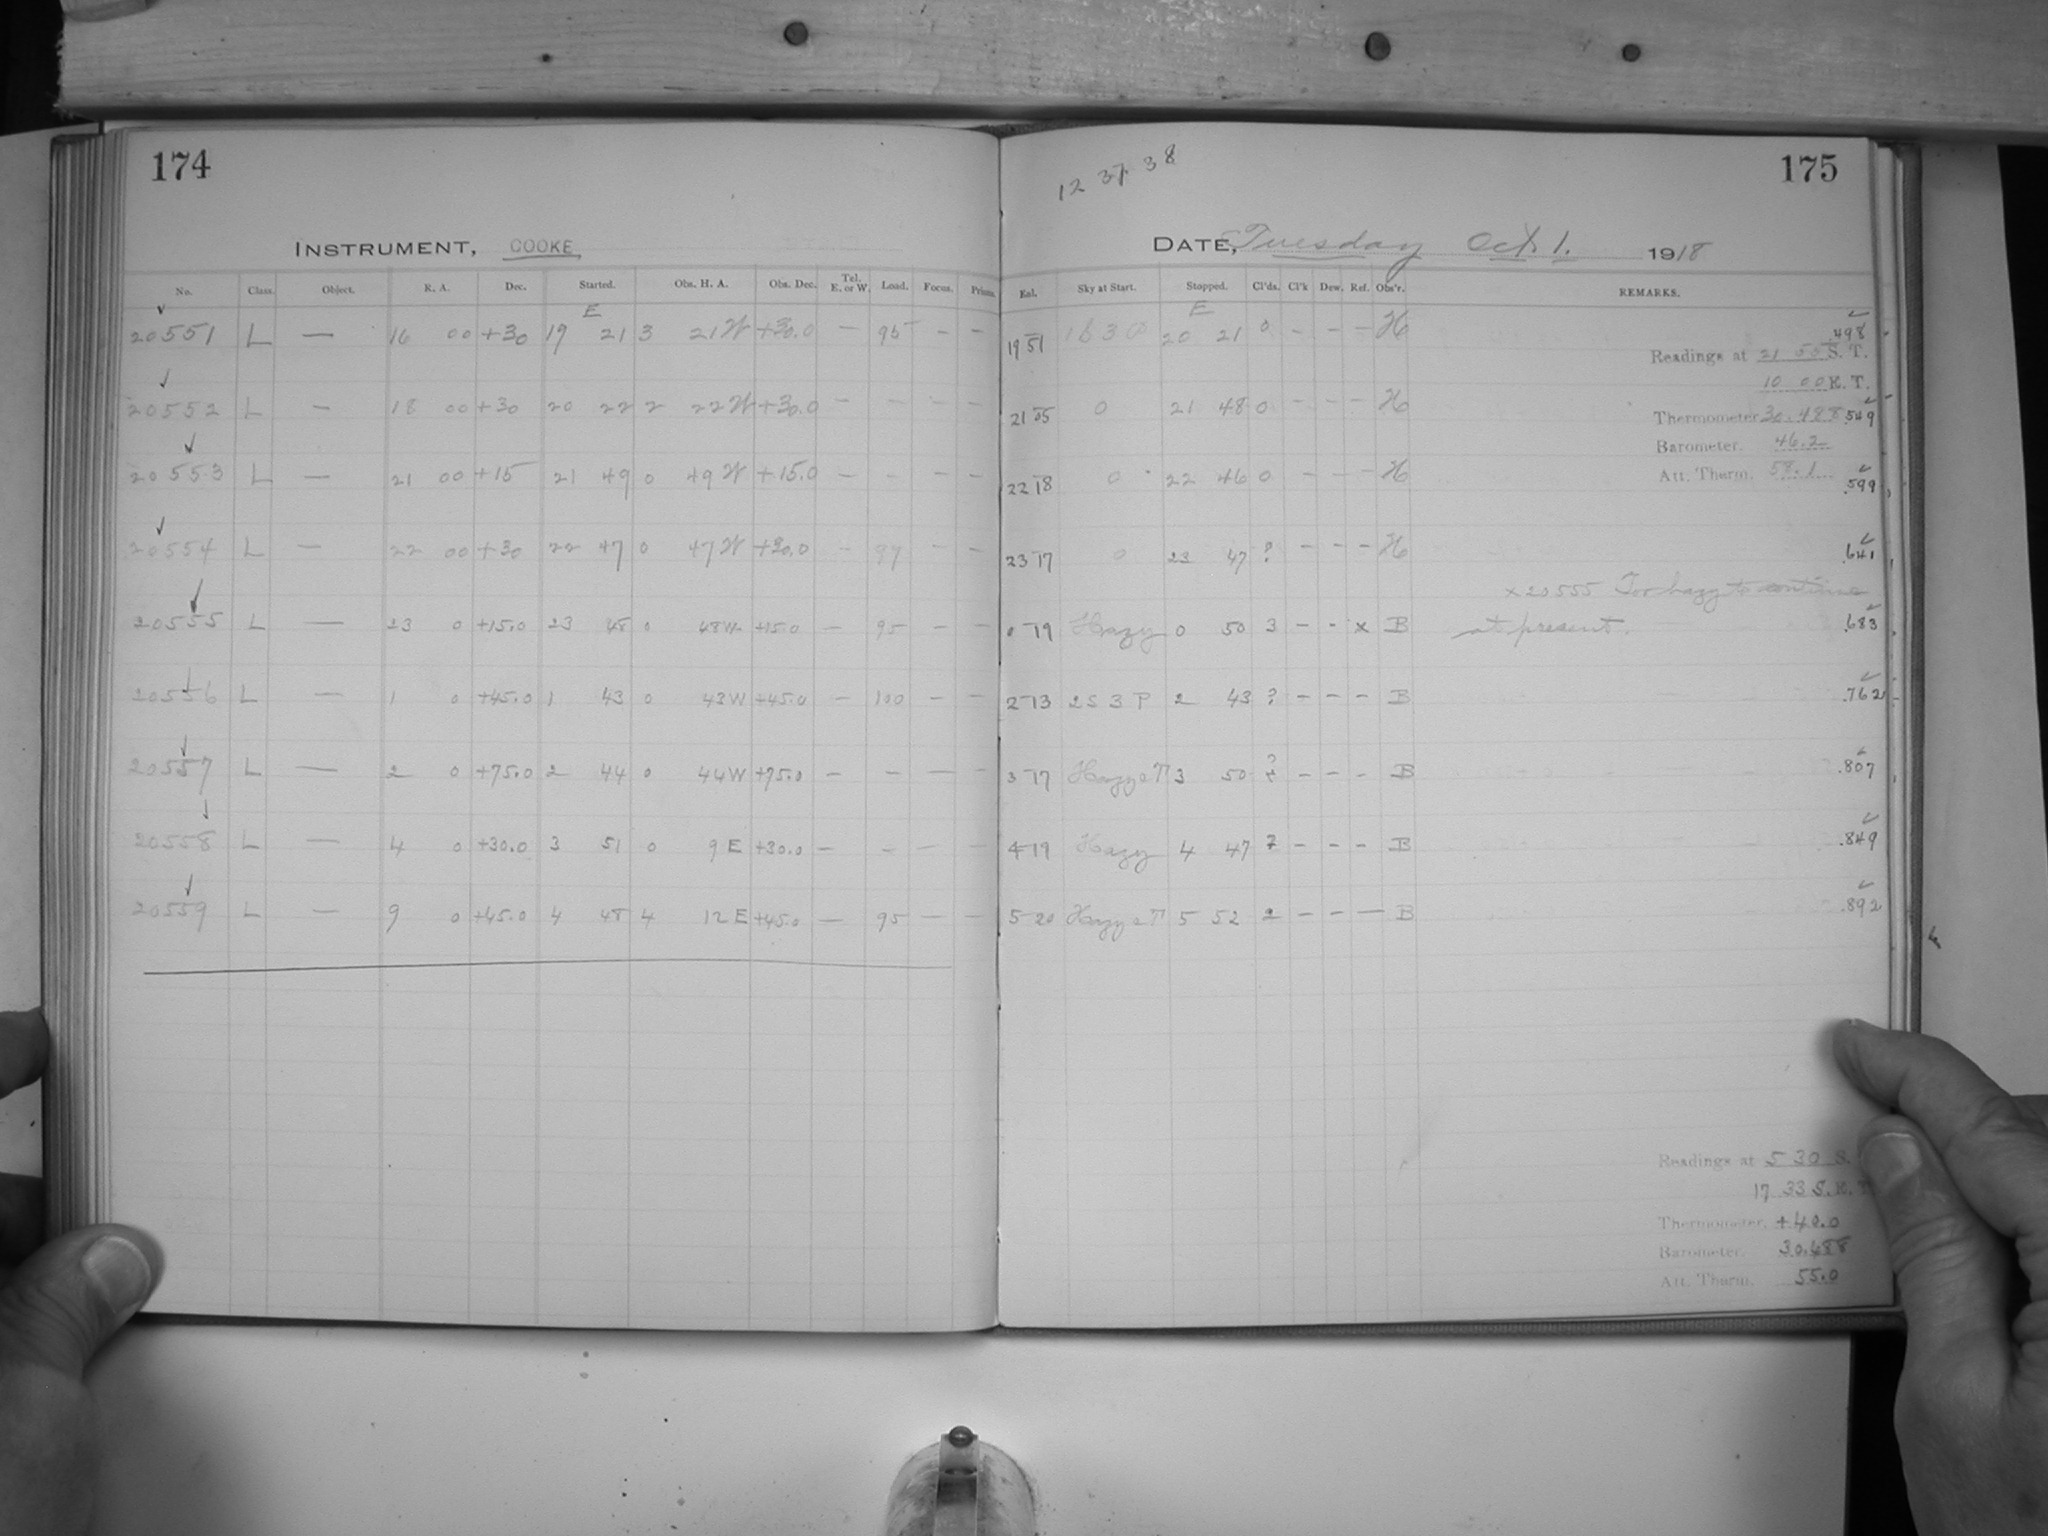 174
12 37 38
175
INSTRUMENT, COOKE
DATE, Tuesday Oct. 1. 1918
No. Class. Object. R. A. Dec. Started. Obs. H. A. Obs. Dec. Tel. E. or W. Load. Focus. Prisms. Eal. Sky at Start. Stopped. Cl'ds. Cl'k Dew. Ref. Obs'r. REMARKS.
E E
20551 L — 16 00 +30 19 21 3 21 W +30.0 — 95 — — 19 51 20 21 0 — — — H .498
Readings at 21 55 S. T.
10 00 E. T.
20552 L — 18 00 +30 20 22 2 22 W +30.0 — — — — 21 05 0 21 48 0 — — — H
Thermometer 30.488 .549
Barometer. 46.2
20553 L — 21 00 +15 21 49 0 49 W +15.0 — — — — 22 18 0 22 46 0 — — — H
Att. Therm. 58.1 .599
20554 L — 22 00 +30 22 47 0 47 W +30.0 — 97 — — 23 17 0 23 47 ? — — — H .641
x 20555 Too hazy to continue
20555 L — 23 0 +15.0 23 48 0 48 W +15.0 — 95 — — 0 19 Hazy 0 50 3 — — x B at present. .683
20556 L — 1 0 +45.0 1 43 0 43 W +45.0 — 100 — — 2 13 2 S 3 P 2 43 ? — — — B .762
20557 L — 2 0 +75.0 2 44 0 44 W +75.0 — — — — 3 17 Hazy 3 50 ? — — — B .807
20558 L — 4 0 +30.0 3 51 0 9 E +30.0 — — — — 4 19 Hazy 4 47 ? — — — B .849
20559 L — 9 0 +45.0 4 48 4 12 E +45.0 — 95 — — 5 20 Hazy 5 52 2 — — — B .892
Readings at 5 30 S.
17 33 S. E. T
Thermometer. +40.0
Barometer. 30.488
Att. Therm. 55.0